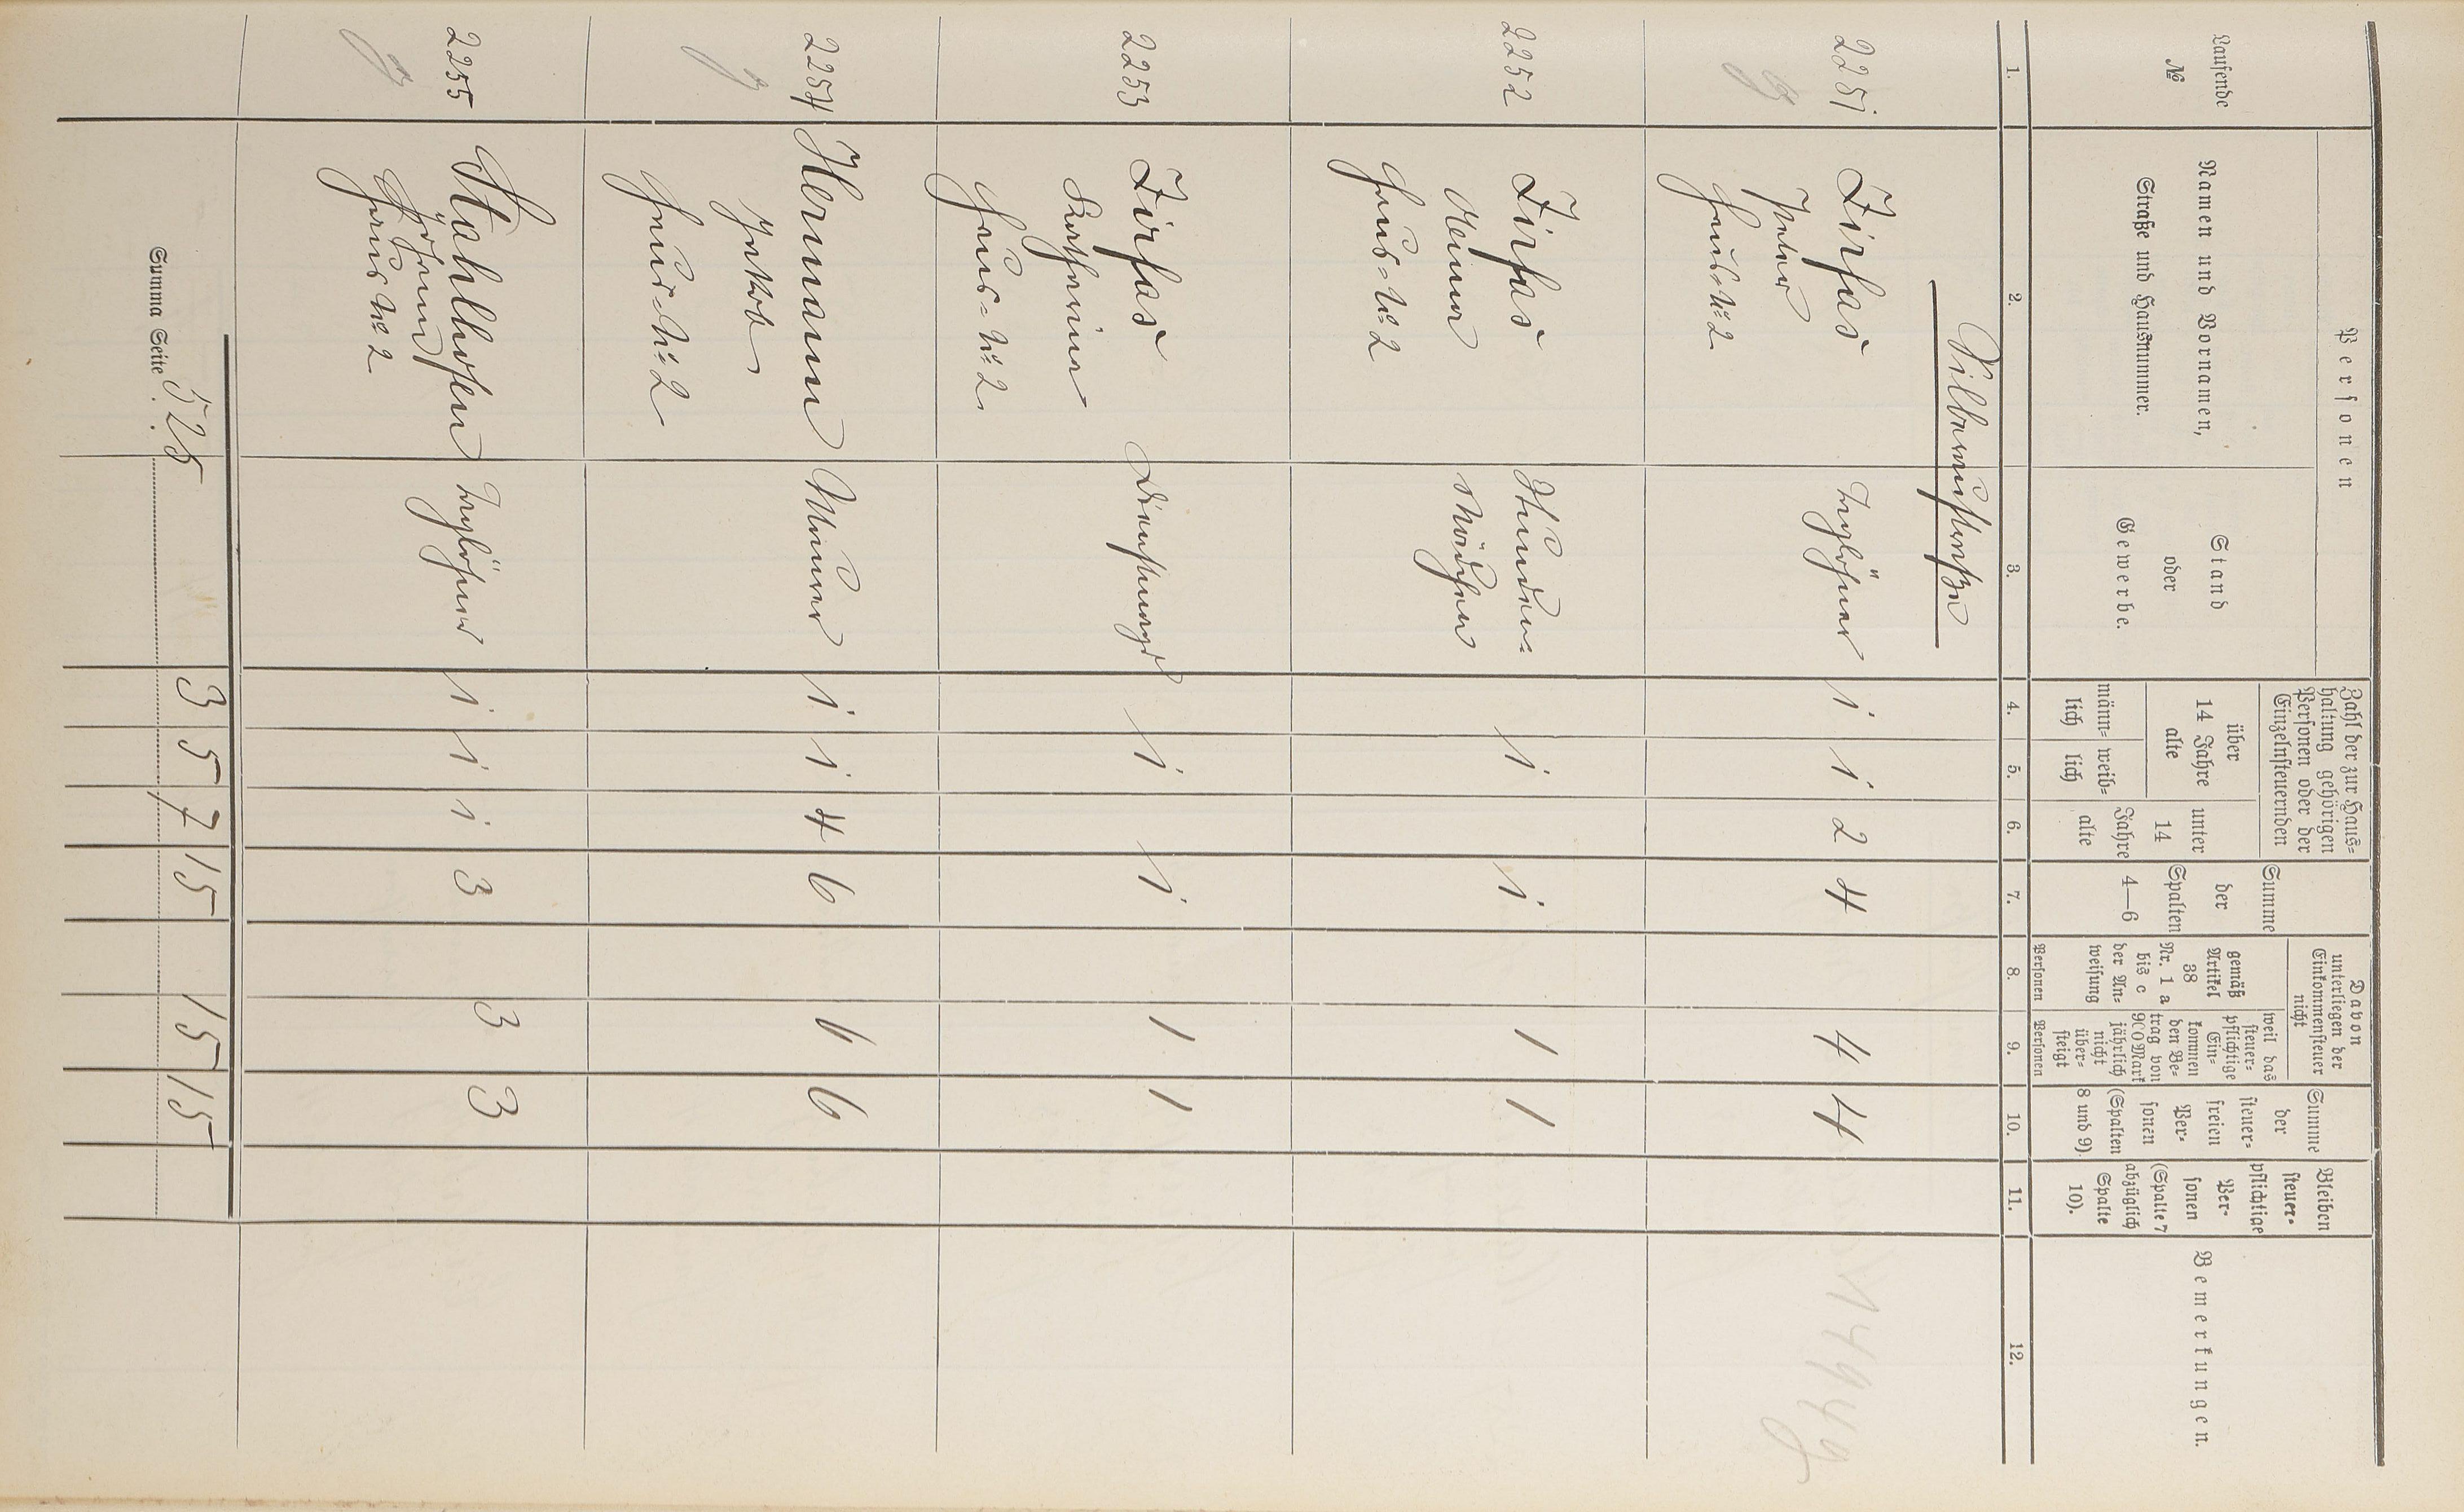 Laufende
№
Personen
Namen und Vornamen,
Straße und Hausnummer.
Stand
oder
Gewerbe.
Zahl der zur Haus=
haltung gehörigen
Personen oder der
Einzelnsteuernden
über
14 Jahre
alte
männ=
lich
weib=
lich
unter
14
Jahre
alte
Summe
der
Spalten
4—6
Davon
unterliegen der
Einkommensteuer
nicht
gemäß
Artikel
38
Nr. 1 a
bis c
der An=
weisung
Personen
weil das
steuer=
pflichtige
Ein=
kommen
den Be=
trag von
900 Mark
jährlich
nicht
über=
steigt
Personen
Summe
der
steuer=
freien
Per=
sonen
(Spalten
8 und 9).
Bleiben
steuer=
pflichtige
Per=
sonen
(Spalte 7
abzüglich
Spalte
10).
Bemerkungen.
1. 2. 3. 4. 5. 6. 7. 8. 9. 10. 11. 12.
Silberaustraße
2251 Zirfas Taglöhner 1 1 2 4 4 4
Peter
Haus=No 2
2252 Zirfas 1 1 1 1
Haus=No 2
Mädchen
2253 Zirfas Dienstmagd 1 1 1 1
Katharina
Haus=No 2
2254 Hermann Maurer 1 1 4 6 6 6
Jakob
Haus=No 2
2255 Stahlhofen Taglöhner 1 1 1 3 3 3
Johann
Haus No 2
Summa Seite 526 3 5 7 15 15 15